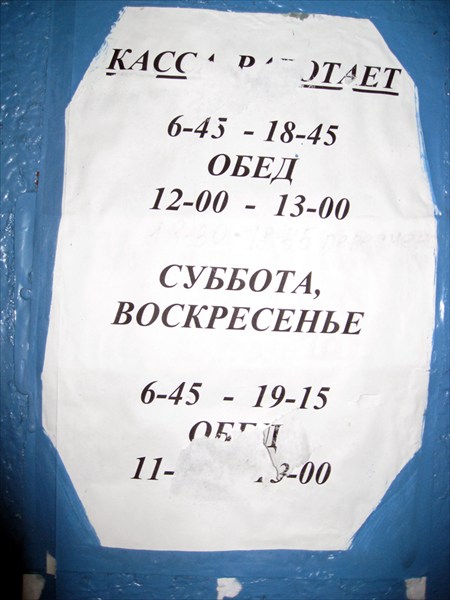 КАССА РАБОТАЕТ
6-45 - 18-45
ОБЕД
12-00 - 13-00
СУББОТА,
ВОСКРЕСЕНЬЕ
6-45 - 19-15
ОБЕД
11-